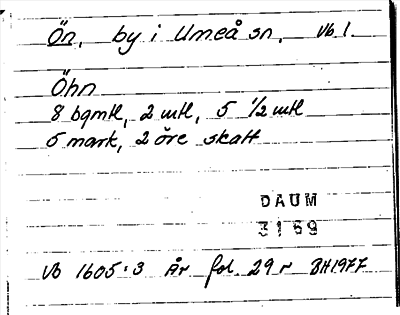 Ön, by i Umeå sn, Vb l.
Öhn
8 bgmtl, 2 mtl, 5 1/2 mtl
5 mark, 2 öre skatt
DAUM
3169
Vb 1605:3 År fol. 29 r BH1977